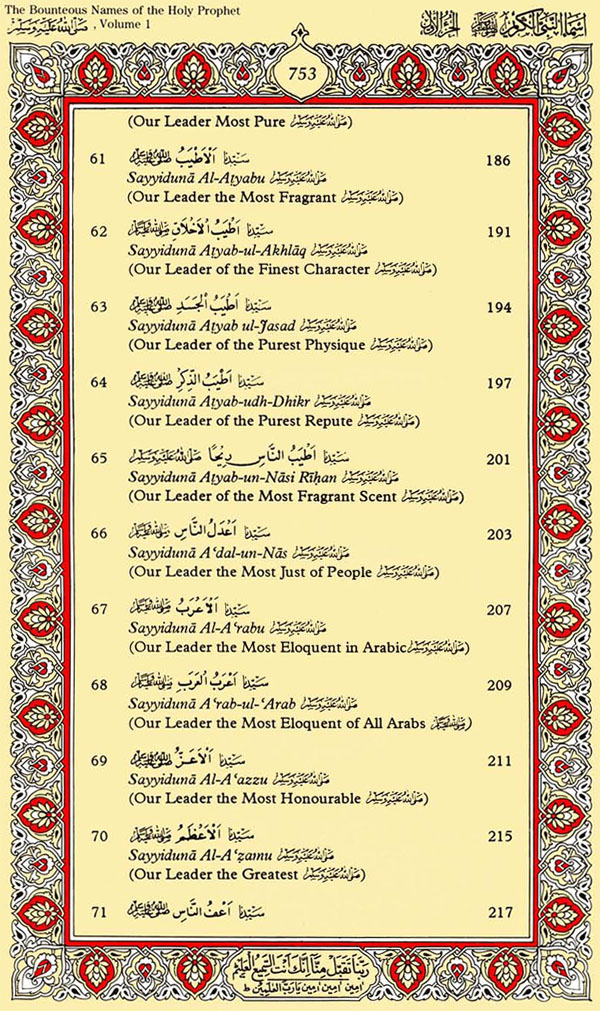 The Bounteous Names of the Holy Prophet
صلى الله عليه وسلم , Volume 1
اسماء النبي الكريم صلى الله عليه وسلم الجزء الاول
753
(Our Leader Most Pure صلى الله عليه وسلم)
61 سَيِّدُنَا اَلْاَطْيَبُ صلى الله عليه وسلم 186
Sayyidunā Al-Aṭyabu صلى الله عليه وسلم
(Our Leader the Most Fragrant صلى الله عليه وسلم)
62 سَيِّدُنَا اَطْيَبُ الْاَخْلَاقِ صلى الله عليه وسلم 191
Sayyidunā Aṭyab-ul-Akhlāq صلى الله عليه وسلم
(Our Leader of the Finest Character صلى الله عليه وسلم)
63 سَيِّدُنَا اَطْيَبُ الْجَسَدِ صلى الله عليه وسلم 194
Sayyidunā Aṭyab ul-Jasad صلى الله عليه وسلم
(Our Leader of the Purest Physique صلى الله عليه وسلم)
64 سَيِّدُنَا اَطْيَبُ الذِّكْرِ صلى الله عليه وسلم 197
Sayyidunā Aṭyab-udh-Dhikr صلى الله عليه وسلم
(Our Leader of the Purest Repute صلى الله عليه وسلم)
65 سَيِّدُنَا اَطْيَبُ النَّاسِ رِيْحًا صلى الله عليه وسلم 201
Sayyidunā Aṭyab-un-Nāsi Rīḥan صلى الله عليه وسلم
(Our Leader of the Most Fragrant Scent صلى الله عليه وسلم)
66 سَيِّدُنَا اَعْدَلُ النَّاسِ صلى الله عليه وسلم 203
Sayyidunā A‘dal-un-Nās صلى الله عليه وسلم
(Our Leader the Most Just of People صلى الله عليه وسلم)
67 سَيِّدُنَا اَلْاَعْرَبُ صلى الله عليه وسلم 207
Sayyidunā Al-A‘rabu صلى الله عليه وسلم
(Our Leader the Most Eloquent in Arabic صلى الله عليه وسلم)
68 سَيِّدُنَا اَعْرَبُ الْعَرَبِ صلى الله عليه وسلم 209
Sayyidunā A‘rab-ul-‘Arab صلى الله عليه وسلم
(Our Leader the Most Eloquent of All Arabs صلى الله عليه وسلم)
69 سَيِّدُنَا اَلْاَعَزُّ صلى الله عليه وسلم 211
Sayyidunā Al-A‘azzu صلى الله عليه وسلم
(Our Leader the Most Honourable صلى الله عليه وسلم)
70 سَيِّدُنَا اَلْاَعْظَمُ صلى الله عليه وسلم 215
Sayyidunā Al-A‘ẓamu صلى الله عليه وسلم
(Our Leader the Greatest صلى الله عليه وسلم)
71 سَيِّدُنَا اَعَفُّ النَّاسِ صلى الله عليه وسلم 217
رَبَّنَا تَقَبَّلْ مِنَّا اِنَّكَ اَنْتَ السَّمِيعُ الْعَلِيمُ
اٰمِين اٰمِين اٰمِين يَا رَبَّ الْعٰلَمِيْن ط